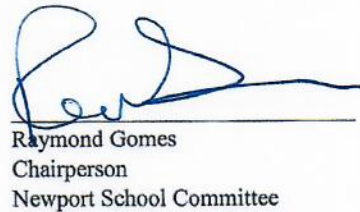 Raymond Gomes
Chairperson
Newport School Committee